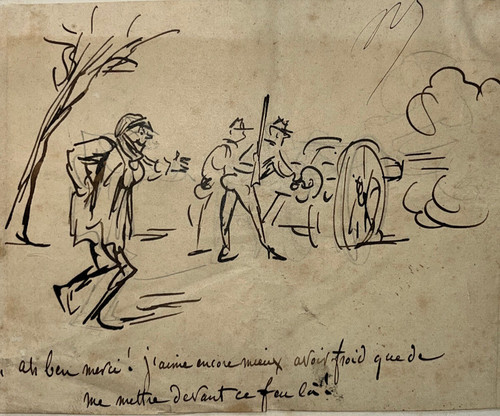 ah ben merci! j'aime encore mieux avoir froid que de
me mettre devant ce feu là!